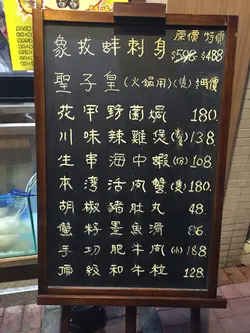 原價 特價
象拔蚌刺身 $598 $488
聖子皇(火鍋用)(隻)時價
花甲野菌焗 180.
川味辣雞煲(隻)138
生串海中蝦(串)108
本灣活肉蟹(隻)180
胡椒豬肚丸 48.
蟹籽墨魚滑 86.
手切肥牛肉(小)188
頂級和牛粒 128.